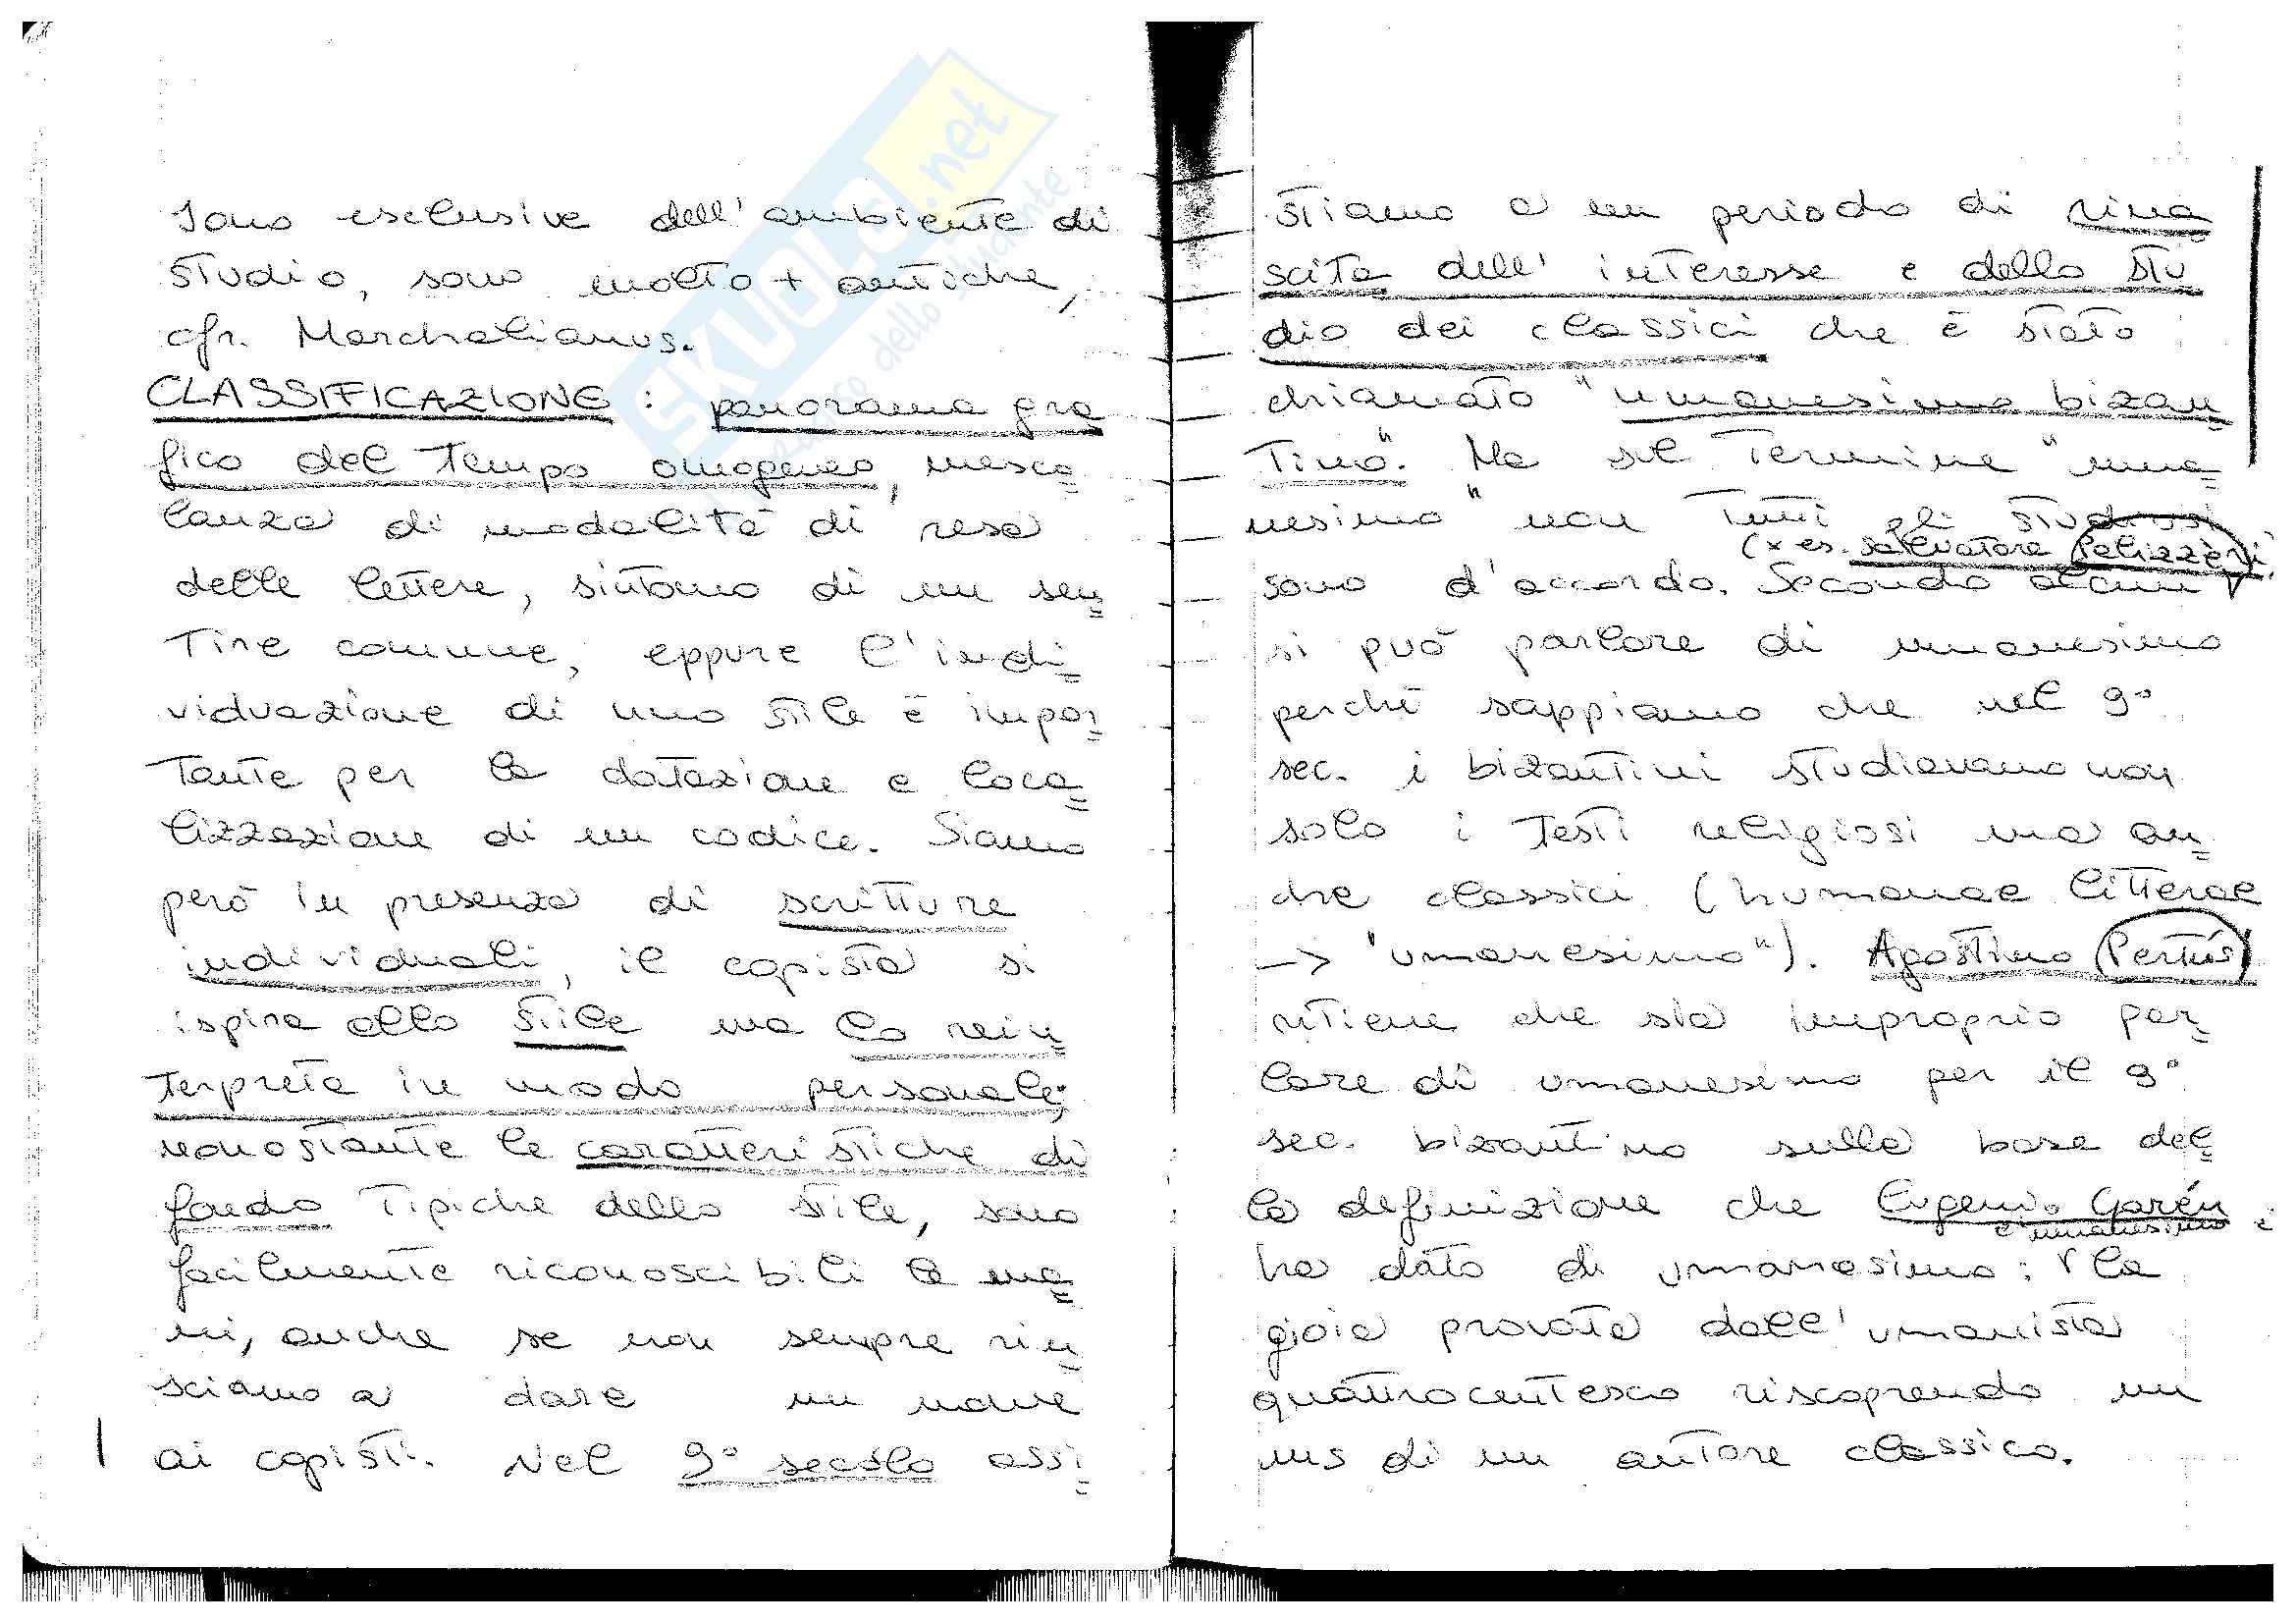 sono esclusive dell'ambiente di
studio, sono molto + antiche,
cfr. Marchalianus.
CLASSIFICAZIONE: panorama gra
fico del tempo omogeneo, mesco
lanza di modalità di resa
delle lettere, sintomo di un sen
tire comune, eppure l'indi
viduazione di uno stile è impor
tante per la datazione e loca
lizzazione di un codice. Siamo
però in presenza di scritture
individuali, il copista si
ispira allo stile ma lo rein
terpreta in modo personale;
nonostante le caratteristiche di
fondo tipiche dello stile, sono
facilmente riconoscibili le ma
ni, anche se non sempre riu
sciamo a dare un nome
ai copisti. Nel 9° secolo assi
stiamo a un periodo di rina
scita dell'interesse e dello stu
dio dei classici che è stato
chiamato "umanesimo bizan
tino". Ma sul termine "uma
nesimo" non tutti gli studiosi
(x es. Salvatore Pelizzeri)
sono d'accordo. Secondo alcuni
si può parlare di umanesimo
perché sappiamo che nel 9°
sec. i bizantini studiavano non
solo i testi religiosi ma an
che classici (humanae litterae
-> "umanesimo"). Agostino Pertusi
ritiene che sia improprio par
lare di umanesimo per il 9°
sec. bizantino sulla base del
la definizione che Eugenio Garén
l'umanesimo è
ha dato di umanesimo: la
gioia provata dall'umanista
quattrocentesco riscoprendo un
ms di un autore classico.
SKUOLA.net